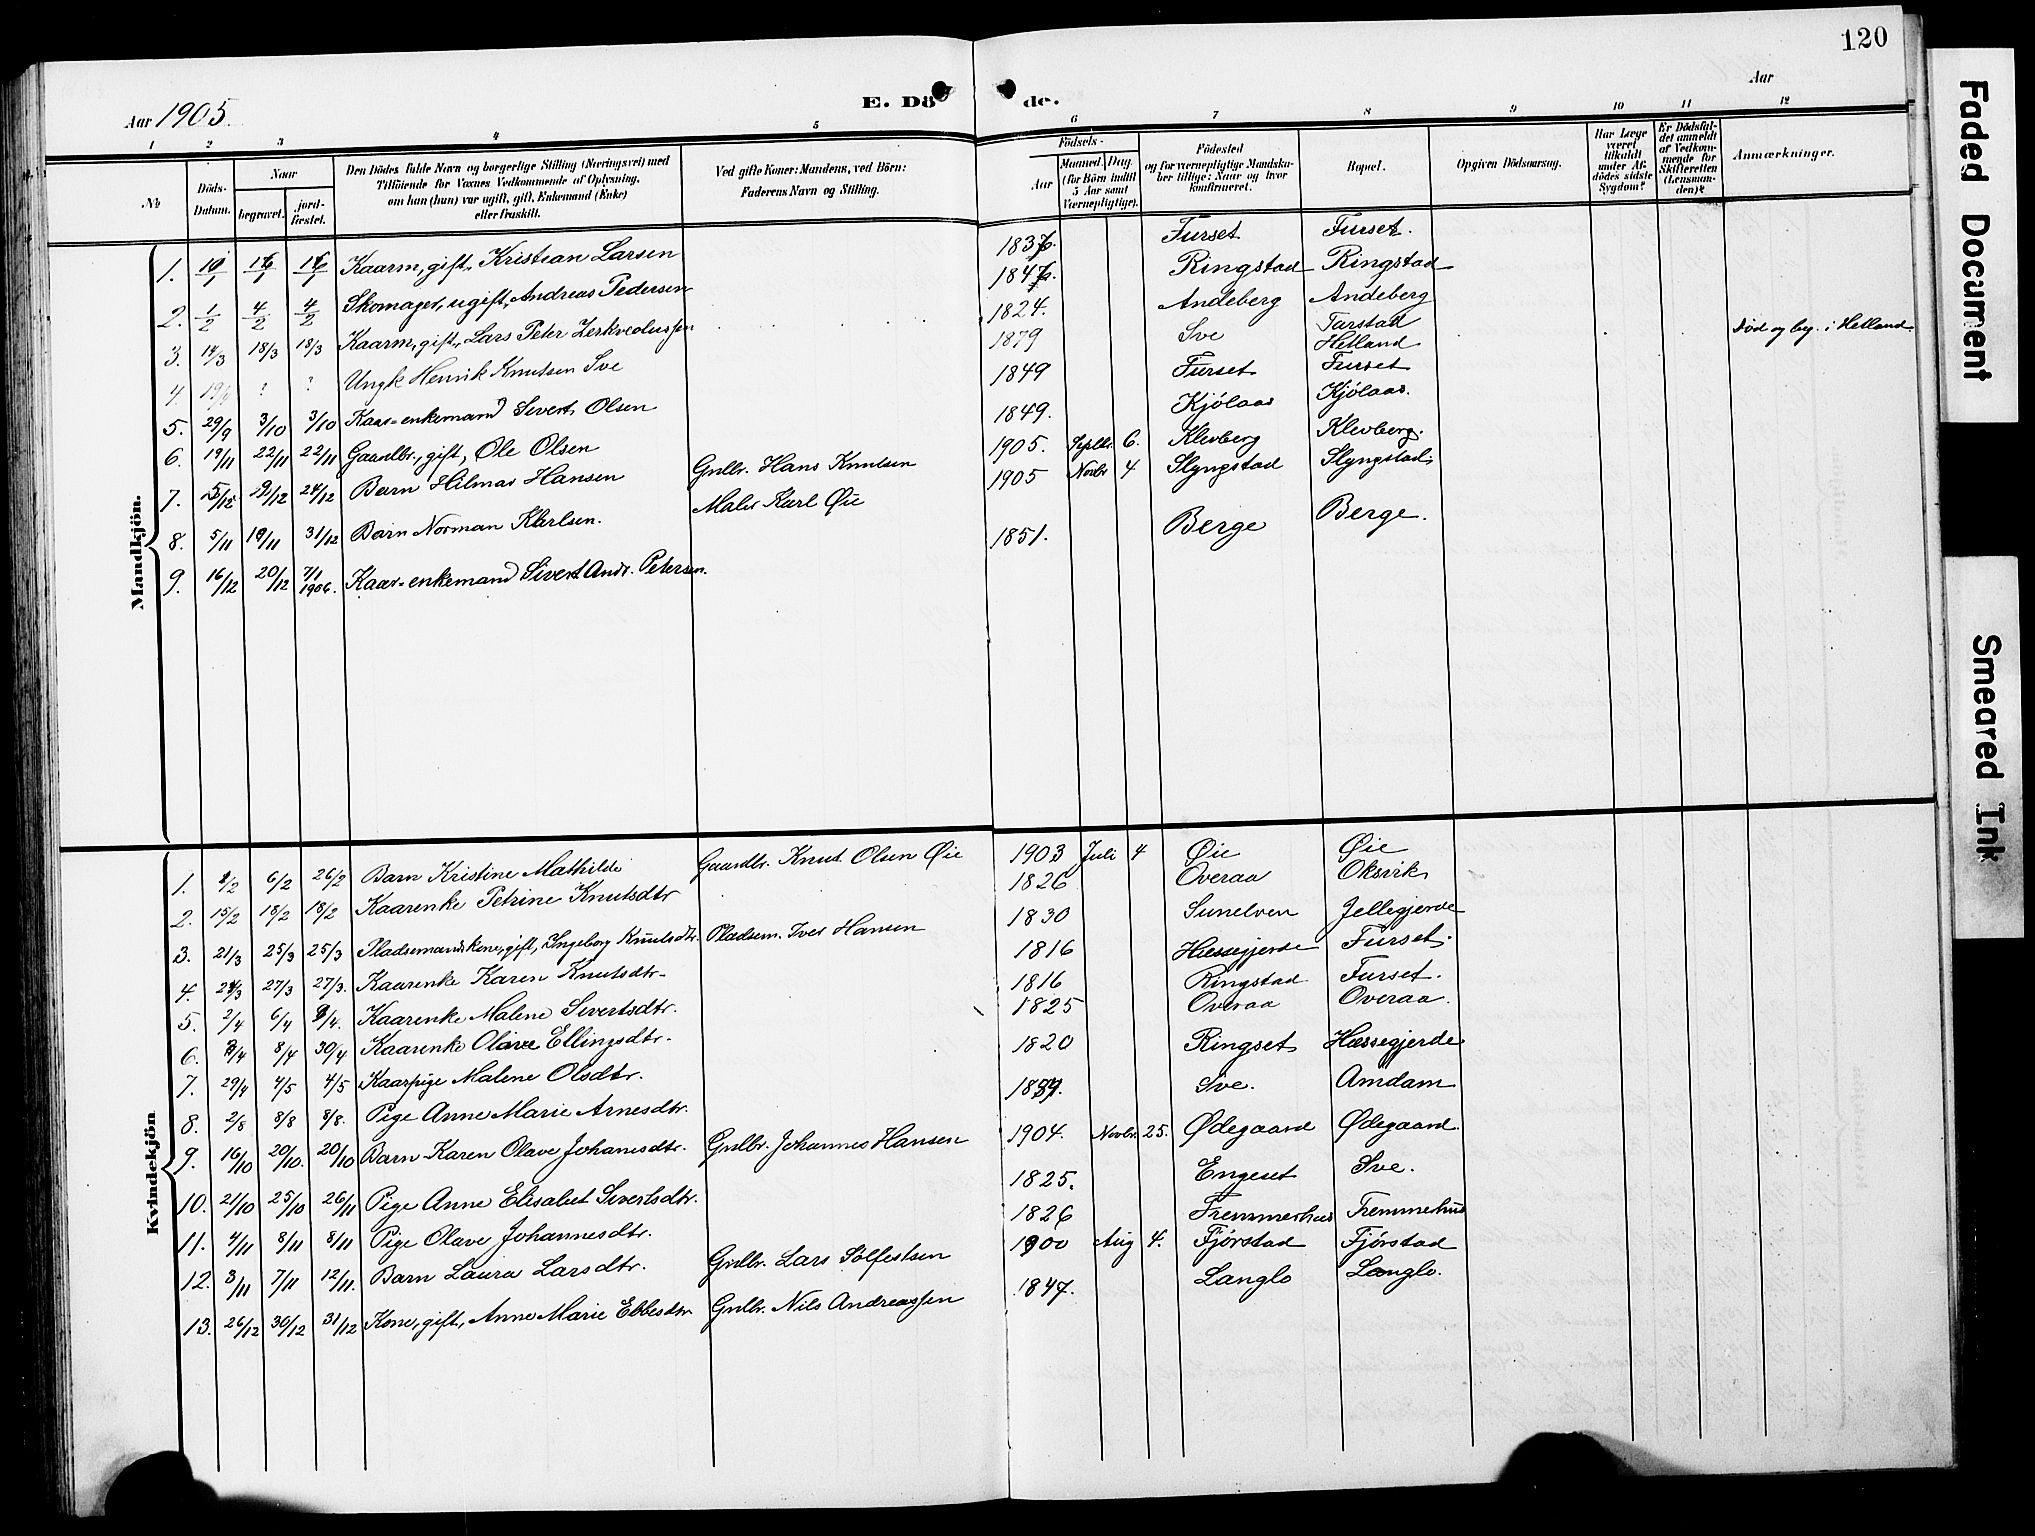 120
Aar 1905.
E. Dö de.
Aar
1 2 3 4 5 6 7 8 9 10 11 12
No
Döds-Datum.
Naar
begravet.
jord-fæstet.
Den Dödes fulde Navn og borgerlige Stilling (Næringsvei) med
Tilföiende for Voxnes Vedkommende af Oplysning,
om han (hun) var ugift, gift, Enkemand (Enke)
eller fraskilt.
Ved gifte Koner: Mandens, ved Börn:
Faderens Navn og Stilling.
Födsels-
Aar
Maaned. Dag.
(for Börn indtil
5 Aar samt
Værnepligtige).
Födested
og for værnepligtige Mandska-
ber tillige: Naar og hvor
konfirmeret.
Bopæl.
Opgiven Dödsaarsag.
Har Læge
været
tilkaldt
under Af-
dödes sidste
Sygdom?
Er Dödsfal-
det anmeldt
af Vedkom-
mende for
Skifteretten
(Lensman-
den)?
Anmærkninger.
Mandkjön.
1. Kaarm, gift, Kristian Larsen Furset Furset.
2. 1/2 4/2 4/2 Skomager, ugift, Andreas Pedersen Ringstad Ringstad
3. 14/3 18/3 18/3 Kaarm, gift, Lars Peter 1824. Andeberg Andeberg
4. 19/4 ? ? Ungk Henrik Knutsen Sve 1879 Sve Tarstad Hetland Död og beg. i Hetland.
5. 29/9 3/10 3/10 Kaar-enkemand Sivert Olsen 1849 Furset Furset
6. 19/11 22/11 22/11 Gaardbr., gift, Ole Olsen 1849. Kjölaas Kjölaas.
7. 15/12 19/12 24/12 Barn Hilmar Hansen Grdbr. Hans Knutsen 1905. Septbr. 6. Klevberg Klevberg.
8. 5/11 19/11 31/12 Barn Norman Karlsen. Maler Karl Øie 1905 Novbr 4 Slyngstad Slyngstad.
9. 16/12 20/12 7/1 1906. Kaar-enkemand Sivert Andr. Petersen. 1851. Berge Berge.
Kvindekjön
1. 6/2 26/2 Barn Kristine Mathilde Gaardbr. Knut Olsen Øie 1903 Juli 4 Øie Øie
2. 15/2 18/2 18/2 Kaarenke Petrine Knutsdtr 1826 Overaa Oksvik
3. 21/3 25/3 25/3 Pladsemandskone, gift, Ingeborg Knutsdtr. Pladsem. Iver Hansen 1830 Sunelven Jellegjerde
4. 27/3 27/3. Kaarenke Karen Knutsdtr. 1816 Hæssegjerde Furset.
5. 2/4 6/4 Kaarenke Malene Sivertsdtr. 1816 Ringstad Furset.
6. 8/4 30/4 Kaarenke Olave Ellingsdtr. 1825 Overaa Overaa.
7. 29/4 4/5 4/5 Kaarpige Malene Olsdtr. 1820 Ringset Hæssegjerde
8. 2/8 8/8 8/8. Pige Anne Marie Arnesdtr. Sve. Amdam
9. 16/10 20/10. 20/10 Barn Karen Olave Johansdtr. Grdbr. Johannes Hansen 1904. Novbr. 25. Ødegaard Ødegaard.
10. 21/10 25/10 26/11 Pige Anne Elisabet Sivertsdtr. 1825. Engeset Sve.
11. 4/11 8/11 8/11 Pige Olave Johannesdtr. 1826 Fremmerhus Fremmerhus
12. 3/11 7/11 12/11. Barn Laura Larsdtr. Grdbr. Lars Sölfestsen 1900 Aug 4. Fjörstad Fjörstad
13. 26/12 30/12 31/12 Kone, gift, Anne Marie Ebbesdtr. Grdbr. Nils Andreassen 1847. Langlo Langlo.
Faded Document
Smeared Ink